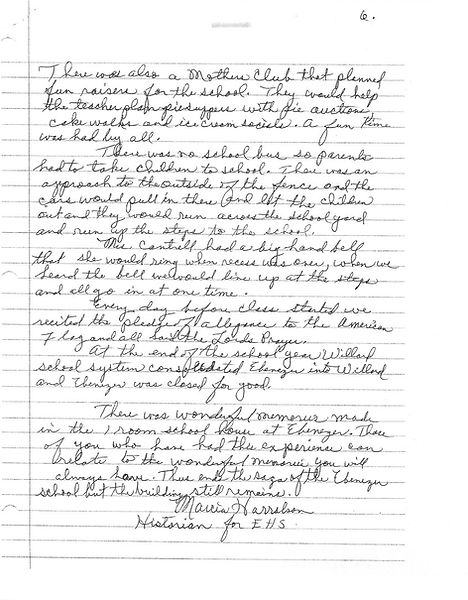 6.
There was also a Mothers Club that planned
fun raisers for the school. They would help
the teacher plan pie suppers with pie auctions,
cake walks and ice cream socials. A fun time
was had by all.
There was no school bus so parents
had to take children to school. There was an
approach to the outside of the fence and the
cars would pull in there and let the children
out and they would run across the school yard
and run up the steps to the school.
Mrs. Cantrill had a big hand bell
that she would ring when recess was over, when we
heard the bell we would line up at the steps
and all go in at one time.
Every day before class started we
recited the pledge of allegance to the American
Flag and all said the Lords Prayer.
At the end of the school year Willard
school system consolidated Ebenezer into Willard
and Ebenezer was closed for good.
There was wonderful memories made
in the 1 room school house at Ebenezer. Those
of you who have had the experience can
relate to the wonderful memories you will
always have. Thus ends the saga of the Ebenezer
school but the building still remains.
Marcia Harralson
Historian for EHS